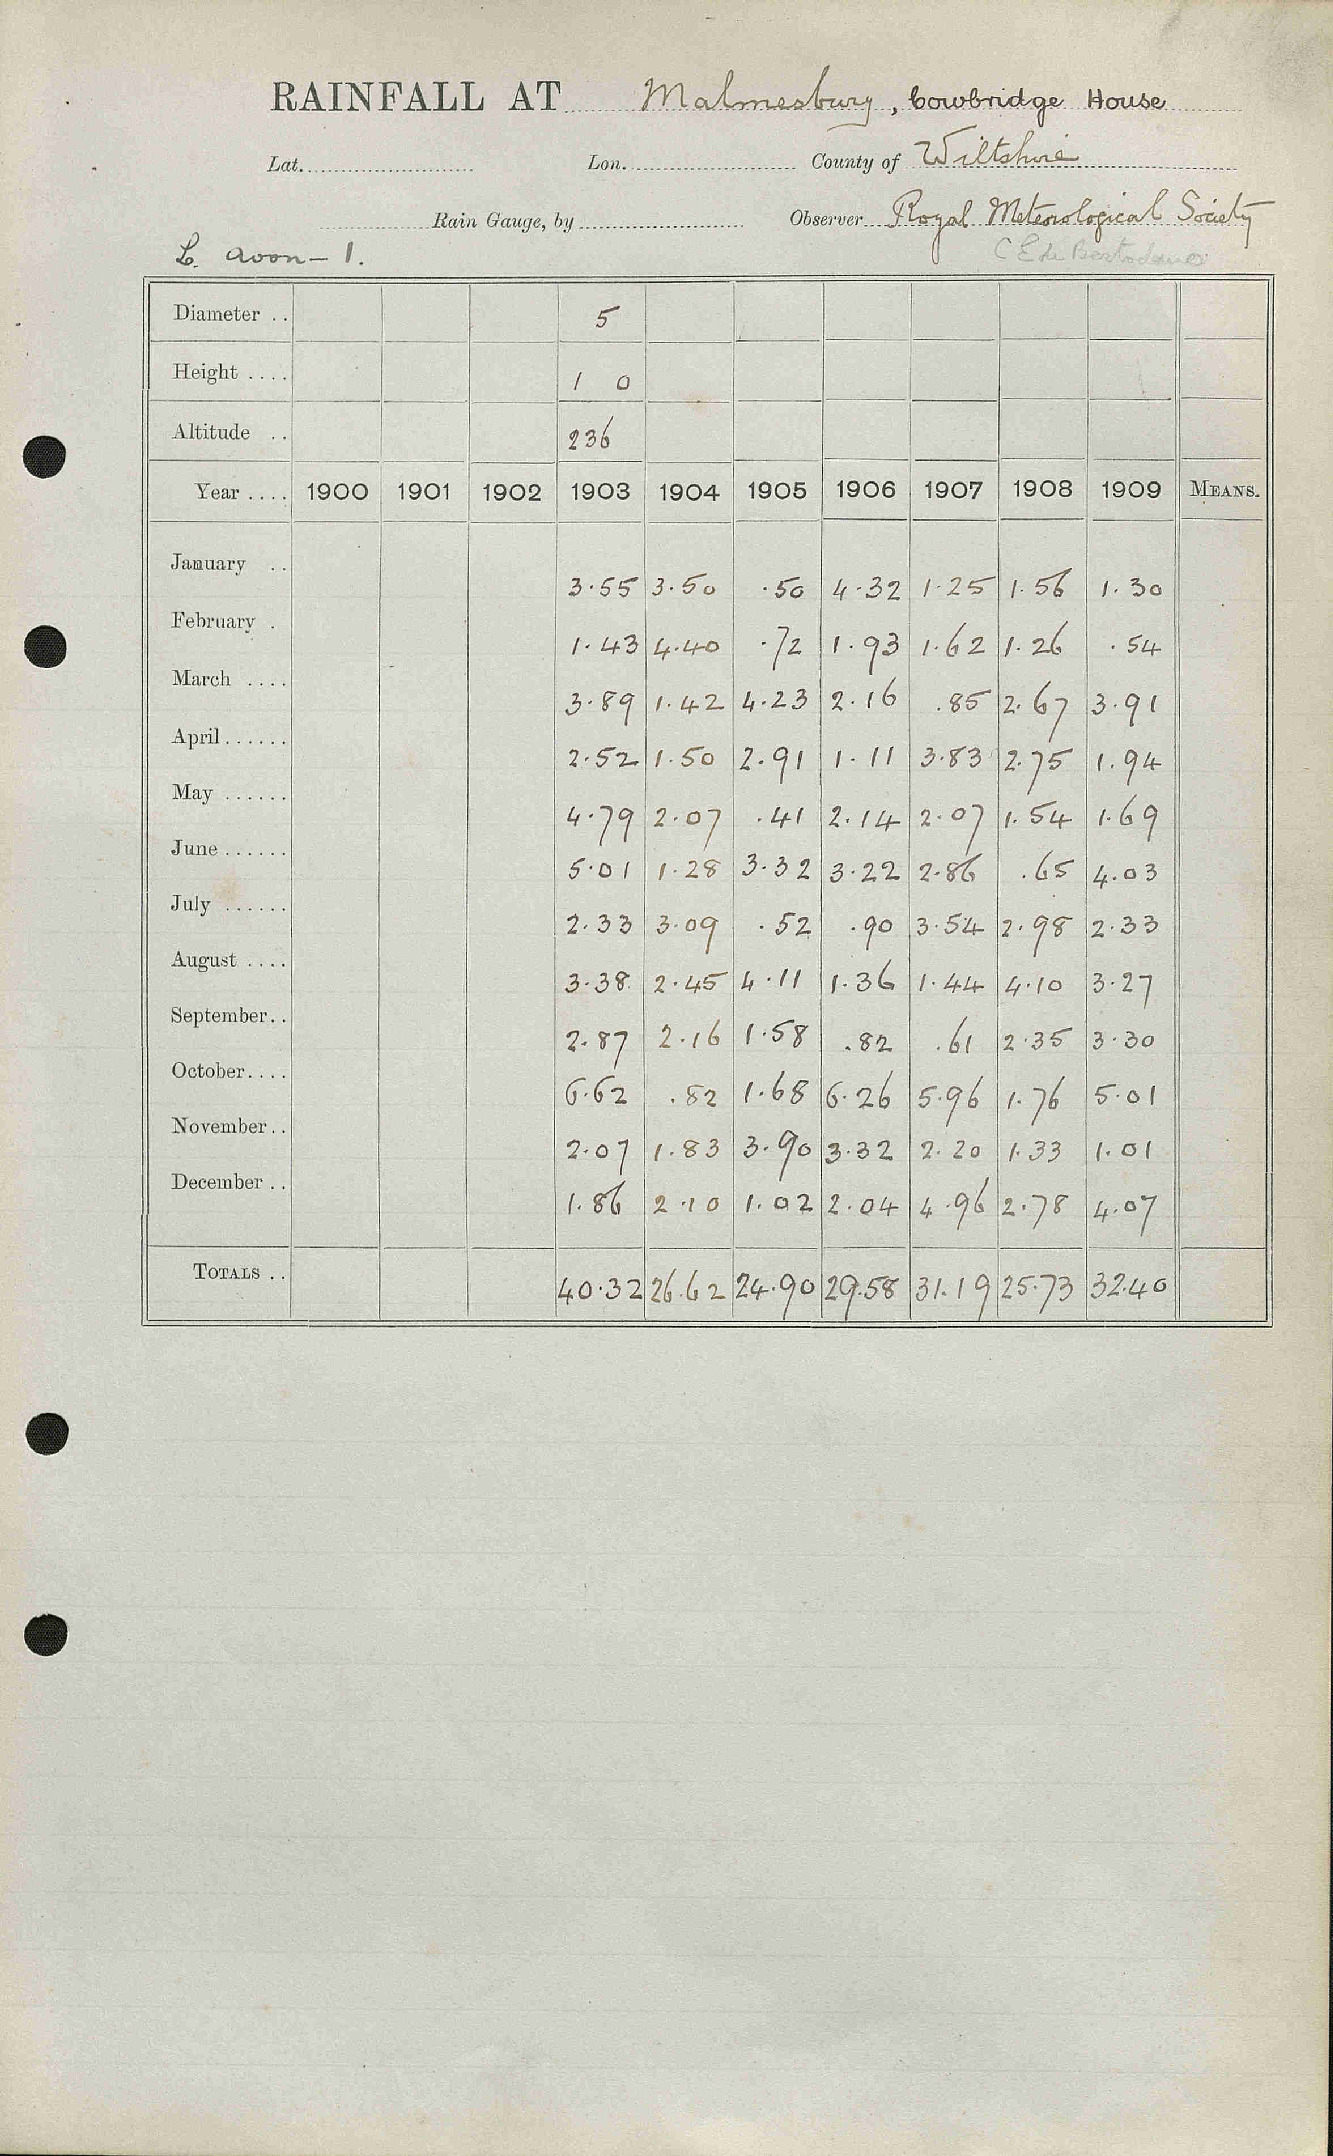 RAINFALL AT Malmesbury, Cowbridge House
Lat. Lon. County of Wiltshire
Rain Gauge, by Observer Royal Meteorological Society
L. Avon - 1.
Diameter .. 5
Height .... 1 0
Altitude .. 236
Year .... 1900 1901 1902 1903 1904 1905 1906 1907 1908 1909 MEANS.
January .. 3.55 3.50 .50 4.32 1.25 1.56 1.30
February . 1.43 4.40 .72 1.93 1.62 1.26 .54
March .... 3.89 1.42 4.23 2.16 .85 2.67 3.91
April...... 2.52 1.50 2.91 1.11 3.83 2.75 1.94
May ...... 4.79 2.07 .41 2.14 2.07 1.54 1.69
June ...... 5.01 1.28 3.32 3.22 2.86 .65 4.03
July ...... 2.33 3.09 .52 .90 3.54 2.98 2.33
August .... 3.38 2.45 4.11 1.36 1.44 4.10 3.27
September.. 2.87 2.16 1.58 .82 .61 2.35 3.30
October.... 6.62 .82 1.68 6.26 5.96 1.76 5.01
November.. 2.07 1.83 3.90 3.32 2.20 1.33 1.01
December .. 1.86 2.10 1.02 2.04 4.96 2.78 4.07
TOTALS .. 40.32 26.62 24.90 29.58 31.19 25.73 32.40